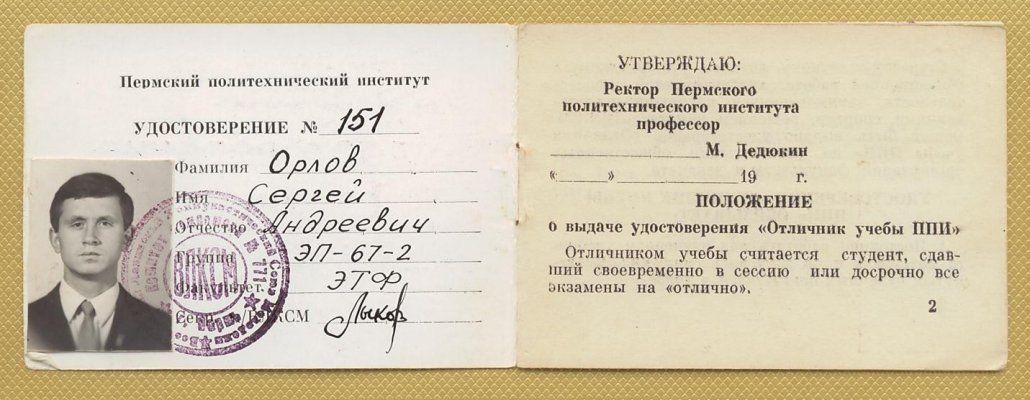 Пермский политехнический институт
УДОСТОВЕРЕНИЕ № 151
Фамилия Орлов
Имя Сергей
Отчество Андреевич
Группа ЭП-67-2
Факультет ЭТФ
Секр. ВЛКСМ Лыков
ВЛКСМ
УТВЕРЖДАЮ:
Ректор Пермского
политехнического института
профессор
М. Дедюкин
« » 19 г.
ПОЛОЖЕНИЕ
о выдаче удостоверения «Отличник учебы ППИ»
Отличником учебы считается студент, сдав-
ший своевременно в сессию или досрочно все
экзамены на «отлично».
2